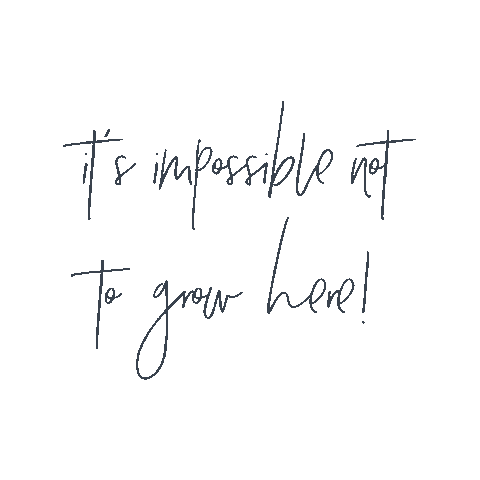 it's impossible not
to grow here!